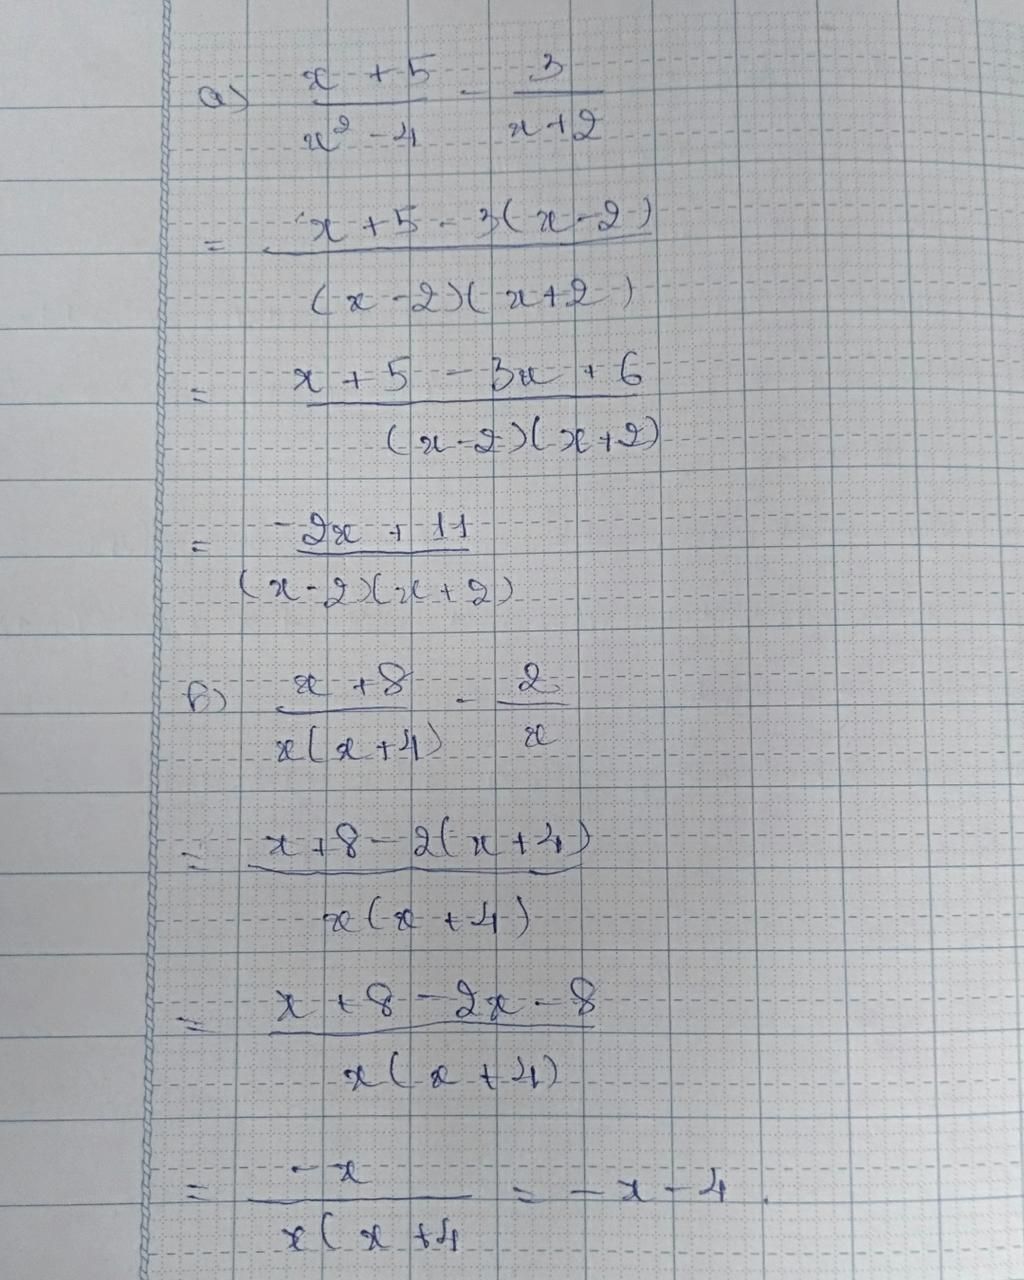 a) \frac{x+5}{x^2-4} - \frac{3}{x+2}
= \frac{x+5-3(x-2)}{(x-2)(x+2)}
= \frac{x+5-3x+6}{(x-2)(x+2)}
= \frac{-2x+11}{(x-2)(x+2)}
b) \frac{x+8}{x(x+4)} - \frac{2}{x}
= \frac{x+8-2(x+4)}{x(x+4)}
= \frac{x+8-2x-8}{x(x+4)}
= \frac{-x}{x(x+4} = -x-4.